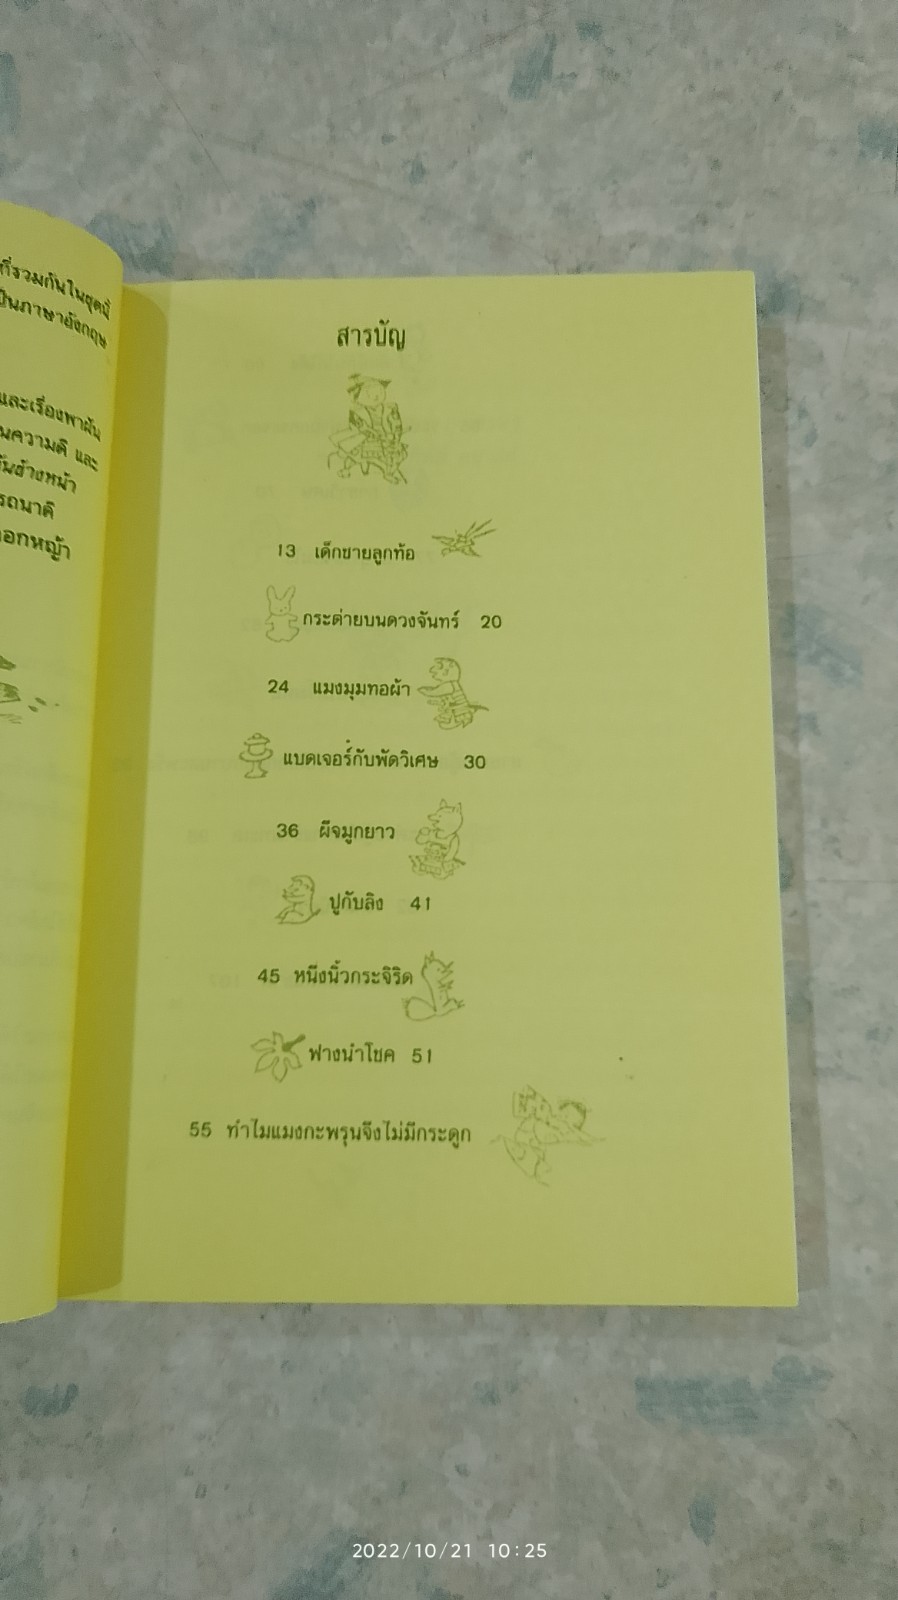 ที่รวมกันในชุดนี้
ป็นภาษาอังกฤษ
และเรื่องพาฝัน
นความดี และ
ันข้างหน้า
รถนาดี
อกหญ้า
สารบัญ
13 เด็กชายลูกท้อ
กระต่ายบนดวงจันทร์ 20
24 แมงมุมทอผ้า
แบดเจอร์กับพัดวิเศษ 30
36 ผีจมูกยาว
ปูกับลิง 41
45 หนึ่งนิ้วกระจิริด
ฟางนำโชค 51
55 ทำไมแมงกะพรุนจึงไม่มีกระดูก
2022/10/21 10:25